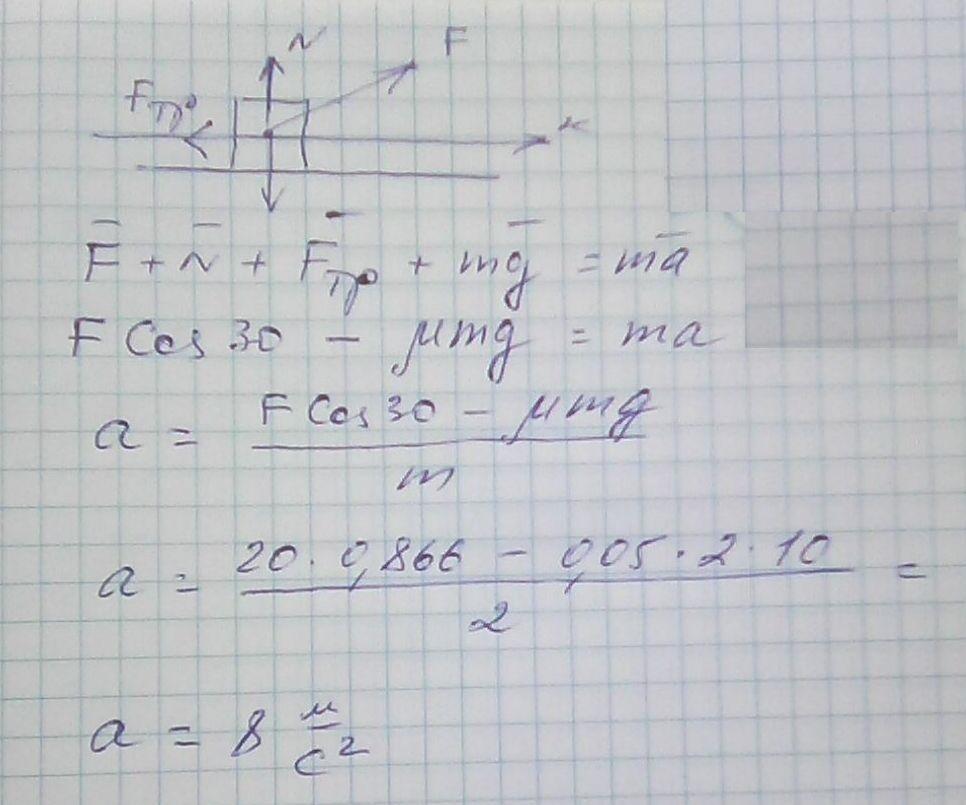 N
F
Fтр
x
F̅ + N̅ + F̅тр + mg̅ = ma̅
F Cos 30 − μmg = ma
a = (F Cos 30 − μmg) / m
a = (20 · 0,866 − 0,05 · 2 · 10) / 2 =
a = 8 м/с²